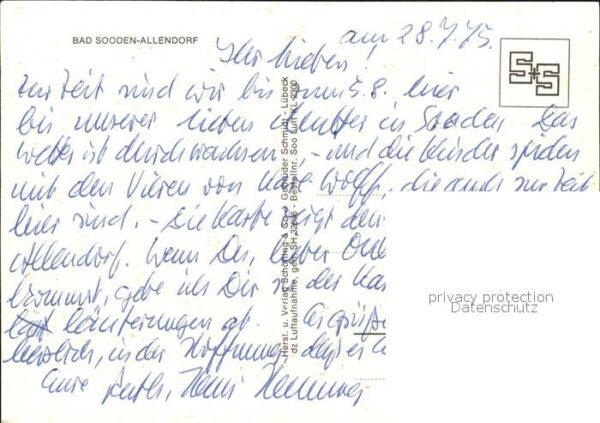 BAD SOODEN-ALLENDORF
am, 28.7.75.
Ihr Lieben!
S+S
zur Zeit sind wir bis zum 5.8. hier
bei unserer lieben Mutter in Sooden. Das
Wetter ist durchwachsen - und die Kinder spielen
mit den Vieren von Wolff, die auch zur Zeit
hier sind. - Die Karte zeigt den
Allendorf. Wenn Du, lieber
kommst, gebe ich Dir zu der Kar
läuterungen ab. Es grüsse
herzlich, in der Hoffnung, daß es
Eure Ruth, Hans
Herst. u. Verlag Schöning & Co + Gebrüder Schmidt, Lübeck
Luftaufnahme, gen. SH
Bestellnr. Soo Luft
privacy protection
Datenschutz